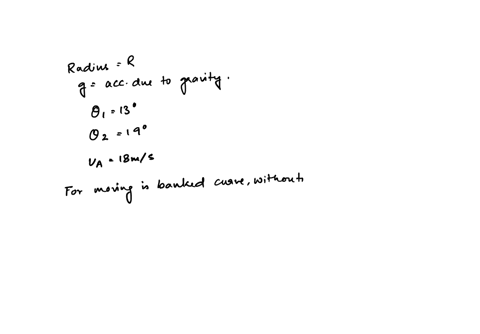 Radius = R
g = acc. due to gravity.
θ₁ = 13°
θ₂ = 19°
v_A = 18m/s
For moving is banked curve, without